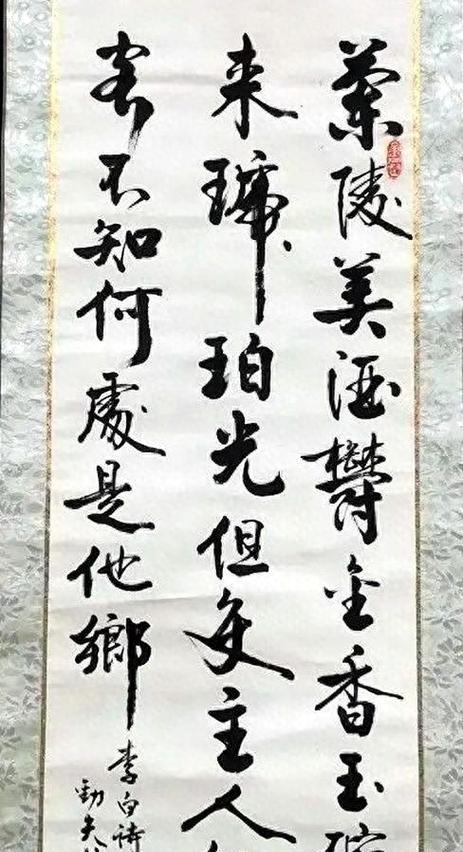 蘭陵美酒鬱金香玉
来琥珀光但使主人
客不知何處是他鄉
李白詩
勁夫